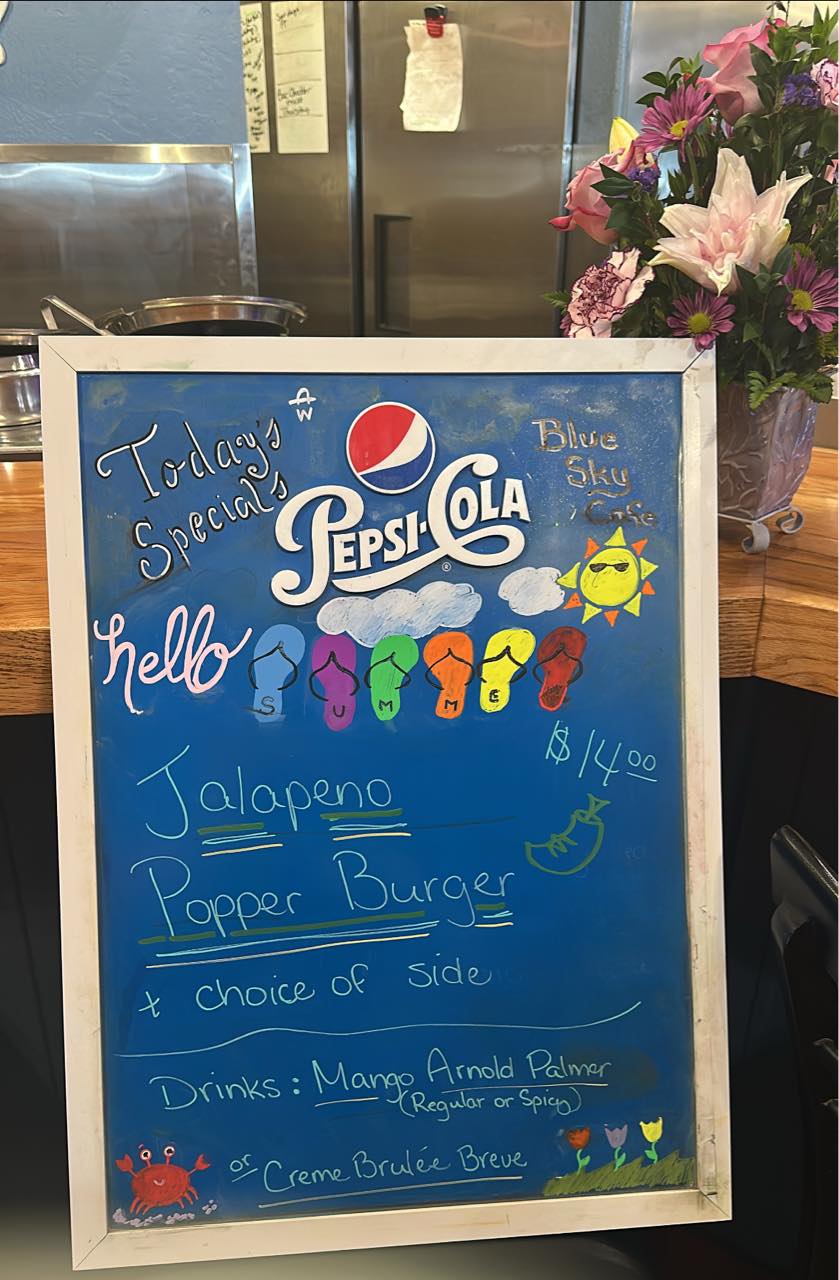 Today's
Special's
AW
PEPSI-COLA
®
Blue
Sky
Cafe
hello
S U M M E
$14.00
Jalapeno
Popper Burger
+ choice of side
Drinks: Mango Arnold Palmer
(Regular or Spicy)
or Creme Brulée Breve